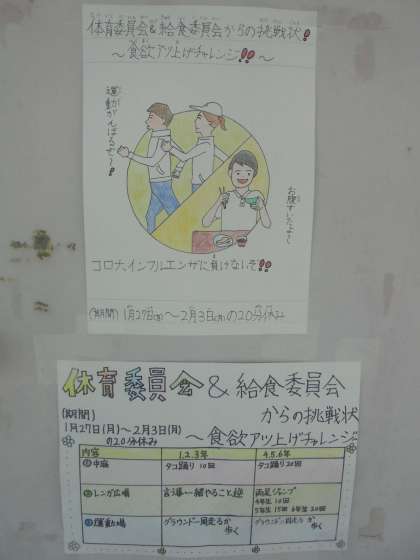 体育委員会&給食委員会からの挑戦状!
～食欲アツ上げチャレンジ!!～
運動がんばるぞ～!
お腹すいたよ～
コロナ、インフルエンザに負けないぞ!!
(期間) 1月27日(月)～2月3日(月)の20分休み
体育委員会&給食委員会
からの挑戦状
(期間)
1月27日(月)～2月3日(月)
の20分休み
～食欲アツ上げチャレンジ
内容 1,2,3年 4,5,6年
①中庭 タコ踊り 10回 タコ踊り 20回
②レンガ広場 言うこと一緒やること逆 両足ジャンプ
4年生 10回
5年生 15回 6年生 20回
③運動場 グラウンド一周走るか
歩く グラウンド一周走るか
歩く